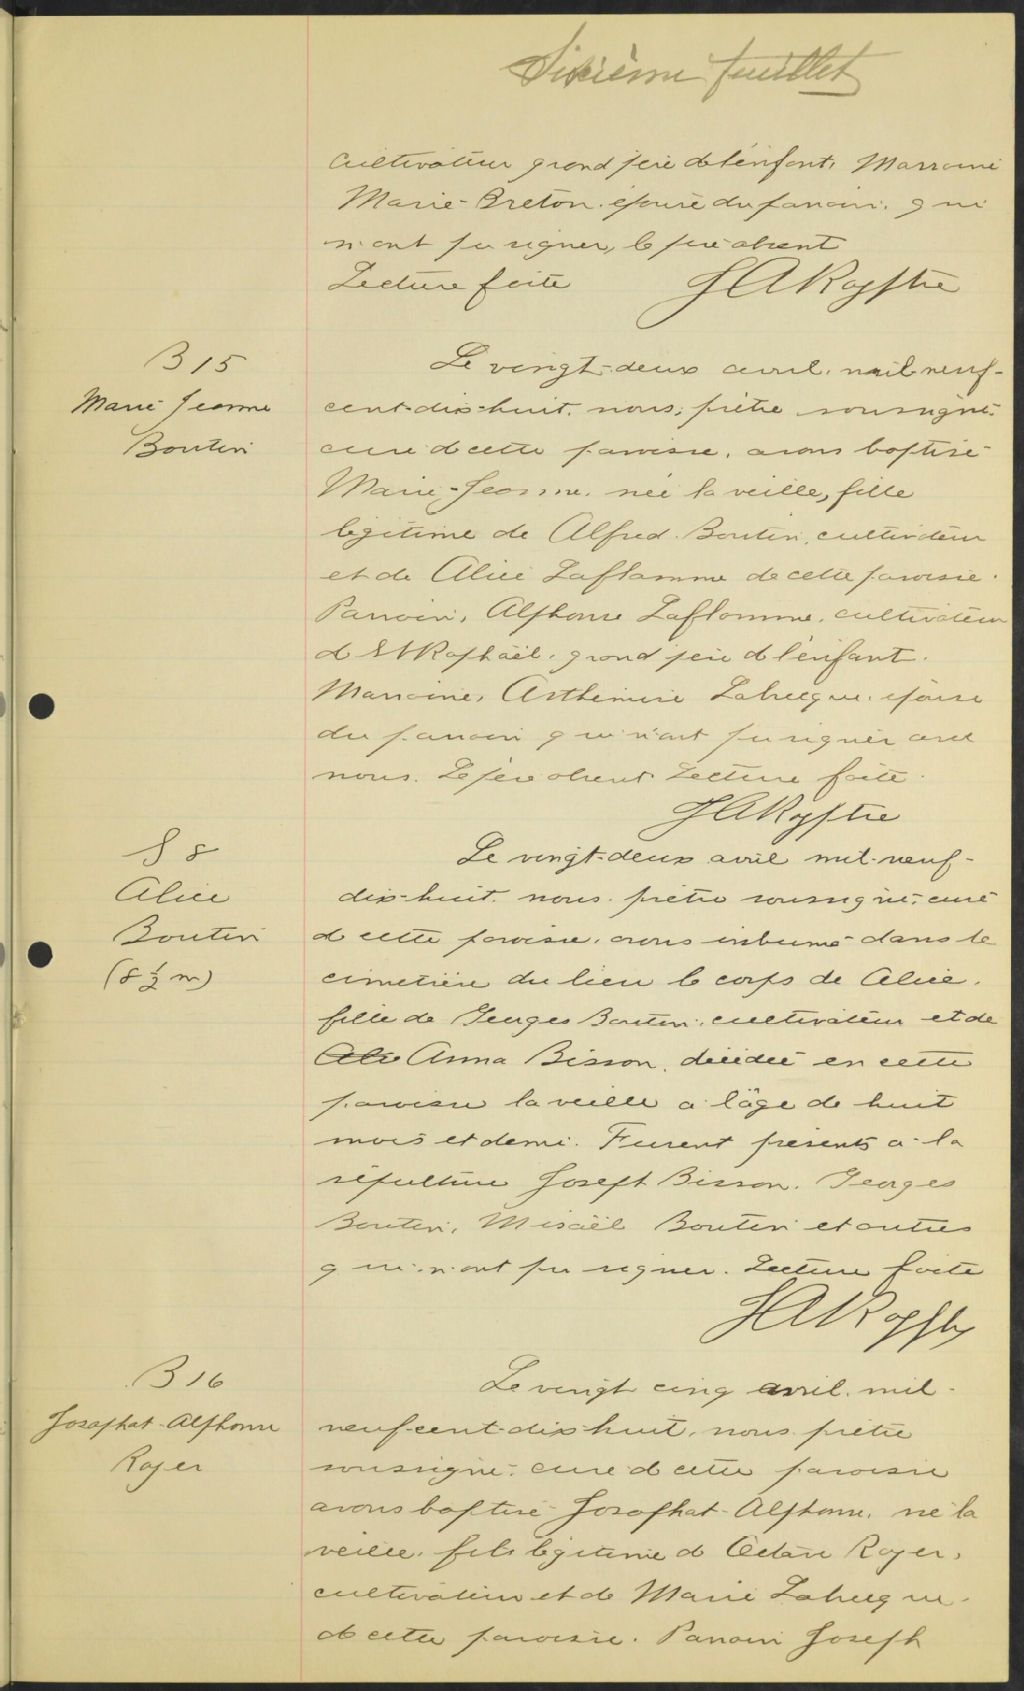 Sixième feuillet
cultivateur grand père de l'enfant, Marraine
Marie-Breton épouse du parrain, qui
n'ont pu signer, le père absent
Lecture faite
B 15
Marie Jeanne
Boutin
Le vingt-deux avril, mil neuf-
cent-dix-huit, nous, prêtre soussigné,
curé de cette paroisse, avons baptisé
Marie-Jeanne, née la veille, fille
légitime de Alfred Boutin, cultivateur
et de Alice Laflamme de cette paroisse.
Parrain, Alphonse Laflamme, cultivateur
de St Raphaël, grand père de l'enfant.
Marraine, Arthémise Labrecque, épouse
du parrain qui n'ont pu signer avec
nous. Le père absent Lecture faite.
S 8
Alice
Boutin
(8 ½ m)
Le vingt-deux avril mil-neuf-
dix-huit, nous prêtre soussigné, curé
de cette paroisse, avons inhumé dans le
cimetière du lieu le corps de Alice,
fille de Georges Boutin, cultivateur et de
Alic Anna Bisson, décédée en cette
paroisse la veille à l'âge de huit
mois et demi. Furent présents à la
sépulture Joseph Bisson, Georges
Boutin, Misaël Boutin et autres
qui n'ont pu signer. Lecture faite
B 16
Josaphat-Alphonse
Royer
Le vingt cinq avril, mil-
neuf-cent-dix-huit, nous prêtre
soussigné, curé de cette paroisse
avons baptisé Josaphat-Alphonse, né la
veille, fils légitime de Octave Royer,
cultivateur et de Marie Labrecque,
de cette paroisse. Parrain Joseph